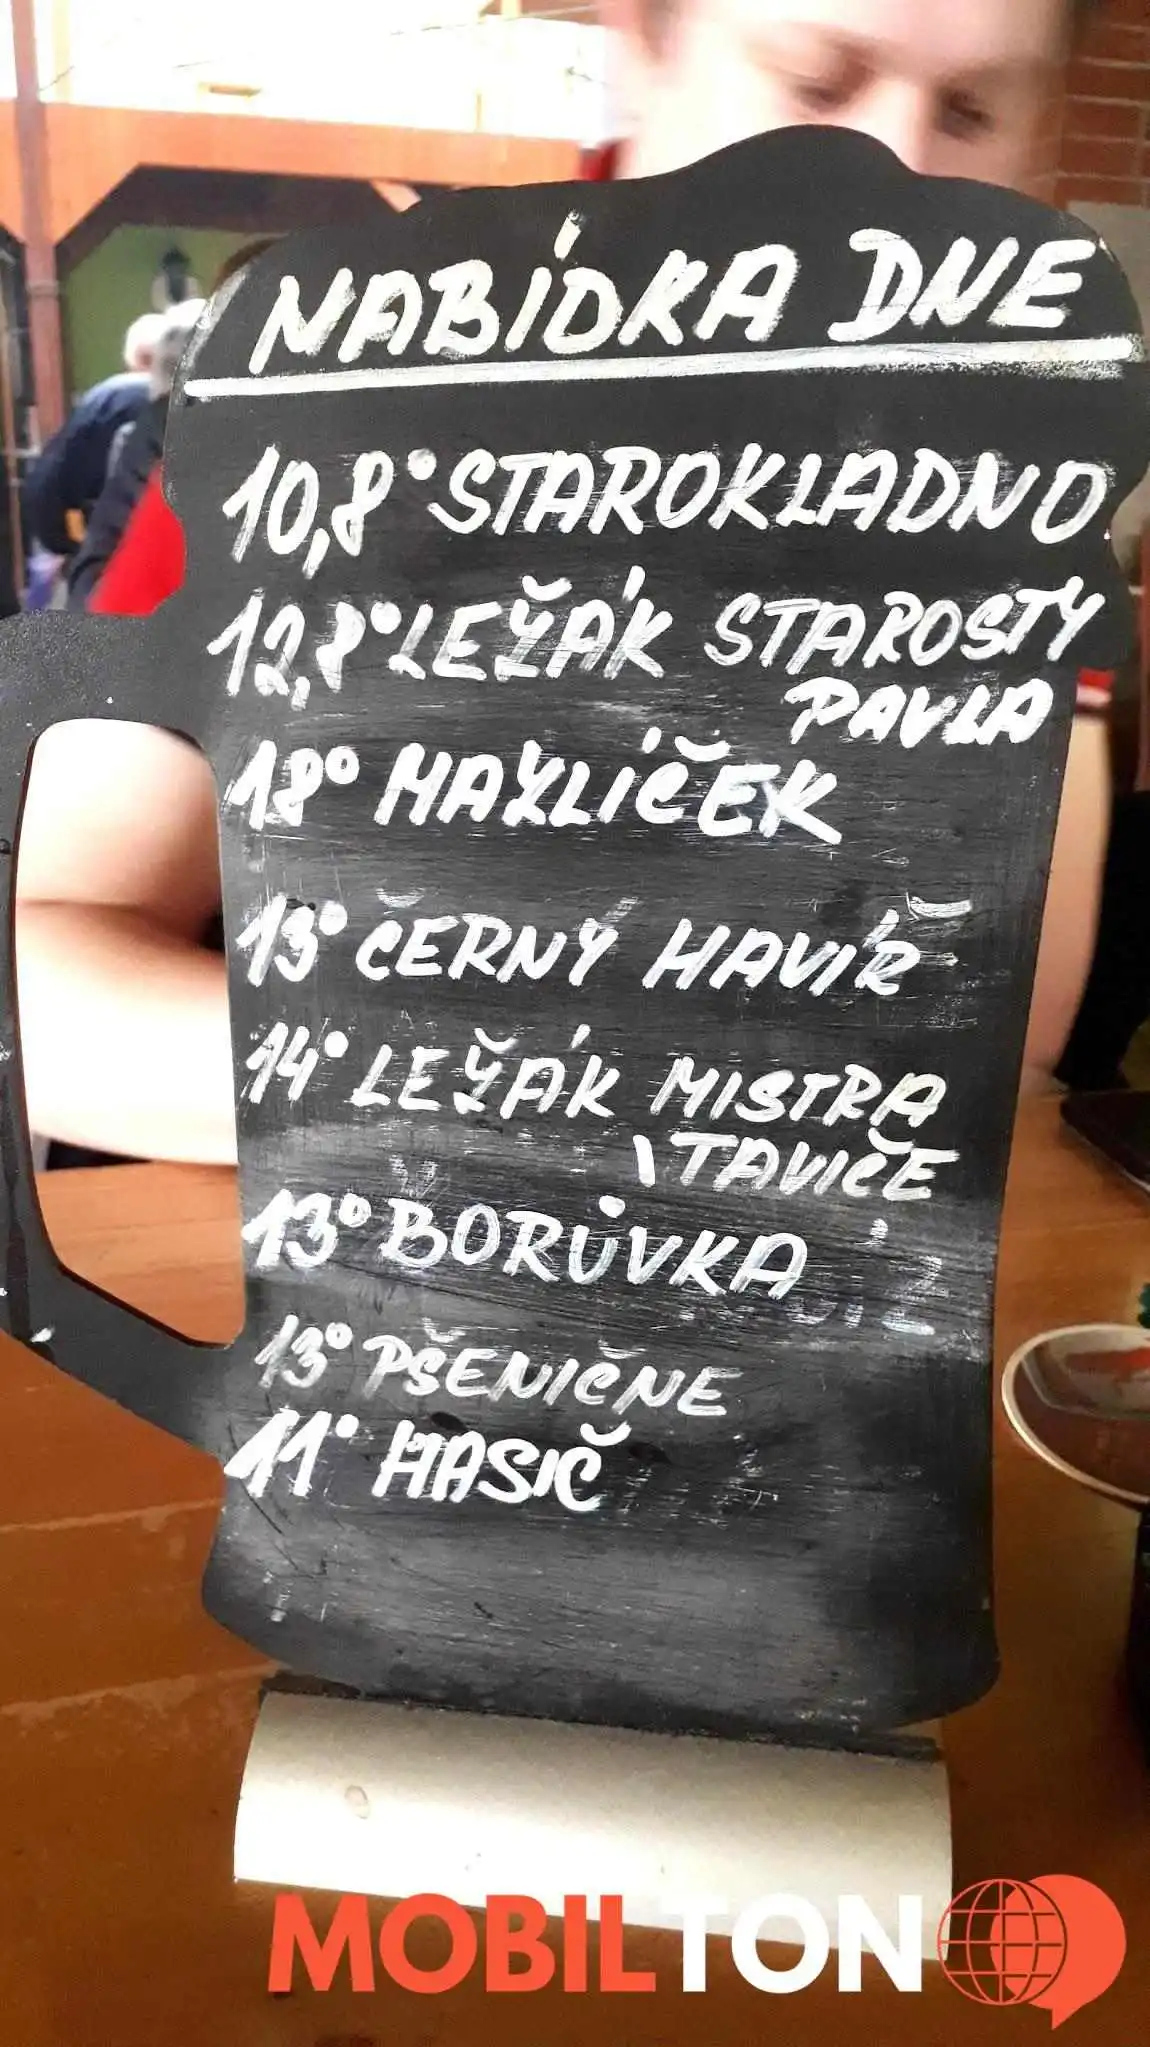 NABÍDKA DNE
10,8° STAROKLADNO
12,8° LEŽÁK STAROSTY
PAVLA
18° HAVLÍČEK
13° ČERNÝ HAVÍŘ
14° LEŽÁK MISTRA
TAVIČE
13° BORŮVKA
13° PŠENIČNE
11° HASIČ
MOBILTON